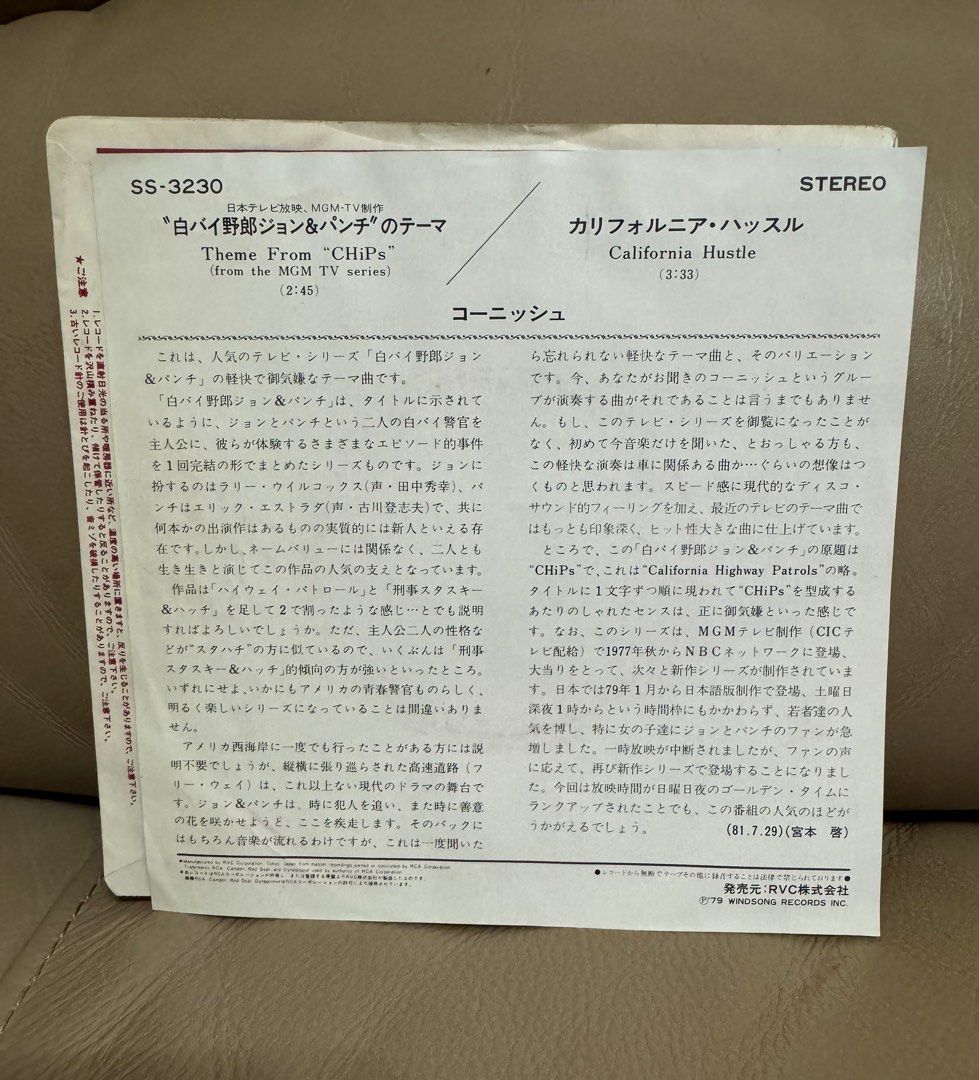 SS-3230
STEREO
日本テレビ放映、MGM-TV制作
“白バイ野郎ジョン&パンチ”のテーマ
Theme From “CHiPs”
(from the MGM TV series)
(2:45)
カリフォルニア・ハッスル
California Hustle
(3:33)
コーニッシュ
これは、人気のテレビ・シリーズ「白バイ野郎ジョン
&パンチ」の軽快で御気嫌なテーマ曲です。
「白バイ野郎ジョン&パンチ」は、タイトルに示されて
いるように、ジョンとパンチという二人の白バイ警官を
主人公に、彼らが体験するさまざまなエピソード的事件
を1回完結の形でまとめたシリーズものです。ジョンに
扮するのはラリー・ウイルコックス(声・田中秀幸)、パ
ンチはエリック・エストラダ(声・古川登志夫)で、共に
何本かの出演作はあるものの実質的には新人といえる存
在です。しかし、ネームバリューには関係なく、二人とも
生き生きと演じてこの作品の人気の支えとなっています。
作品は「ハイウェイ・パトロール」と「刑事スタスキー
&ハッチ」を足して2で割ったような感じ…とでも説明
すればよろしいでしょうか。ただ、主人公二人の性格な
どが“スタハチ”の方に似ているので、いくぶんは「刑事
スタスキー&ハッチ」的傾向の方が強いといったところ。
いずれにせよ、いかにもアメリカの青春警官ものらしく、
明るく楽しいシリーズになっていることは間違いありま
せん。
アメリカ西海岸に一度でも行ったことがある方には説
明不要でしょうが、縦横に張り巡らされた高速道路(フ
リー・ウェイ)は、これ以上ない現代のドラマの舞台で
す。ジョン&パンチは、時に犯人を追い、また時に善意
の花を咲かせようと、ここを疾走します。そのバックに
はもちろん音楽が流れるわけですが、これは一度聞いた
ら忘れられない軽快なテーマ曲と、そのバリエーション
です。今、あなたがお聞きのコーニッシュというグルー
プが演奏する曲がそれであることは言うまでもありませ
ん。もし、このテレビ・シリーズを御覧になったことが
なく、初めて今音楽だけを聞いた、とおっしゃる方も、
この軽快な演奏は車に関係ある曲か…ぐらいの想像はつ
くものと思われます。スピード感に現代的なディスコ・
サウンド的フィーリングを加え、最近のテレビのテーマ曲で
はもっとも印象深く、ヒット性大きな曲に仕上げています。
ところで、この「白バイ野郎ジョン&パンチ」の原題は
“CHiPs”で、これは“California Highway Patrols”の略。
タイトルに1文字ずつ順に現われて“CHiPs”を型成する
あたりのしゃれたセンスは、正に御気嫌といった感じで
す。なお、このシリーズは、MGMテレビ制作(CICテ
レビ配給)で1977年秋からNBCネットワークに登場、
大当りをとって、次々と新作シリーズが制作されていま
す。日本では79年1月から日本語版制作で登場、土曜日
深夜1時からという時間枠にもかかわらず、若者達の人
気を博し、特に女の子達にジョンとパンチのファンが急
増しました。一時放映が中断されましたが、ファンの声
に応えて、再び新作シリーズで登場することになりまし
た。今回は放映時間が日曜日夜のゴールデン・タイムに
ランクアップされたことでも、この番組の人気のほどが
うかがえるでしょう。
(81.7.29)(宮本 啓)
●Manufactured by RVC Corporation, Tokyo, Japan, from master recordings owned or controlled by RCA Corporation.
Trademarks RCA, Camden, Red Seal, and Dynagroove used by authority of RCA Corporation
●レコードから無断でテープその他に録音することは法律で禁じられております●
発売元:RVC株式会社
Ⓟ'79 WINDSONG RECORDS INC.
★ご注意
1. レコードを直射日光の当る所や暖房器に近い所など、温度の高い場所に置きますと、反りを生じることがありますので、ご注意下さい。
2. レコードを沢山積み重ねたり、傾けて保管したりすると反ることがありますので、ご注意下さい。
3. 古いレコード針のご使用は針とびを起こしたり、音ミゾを破損したりすることがありますので、ご注意下さい。